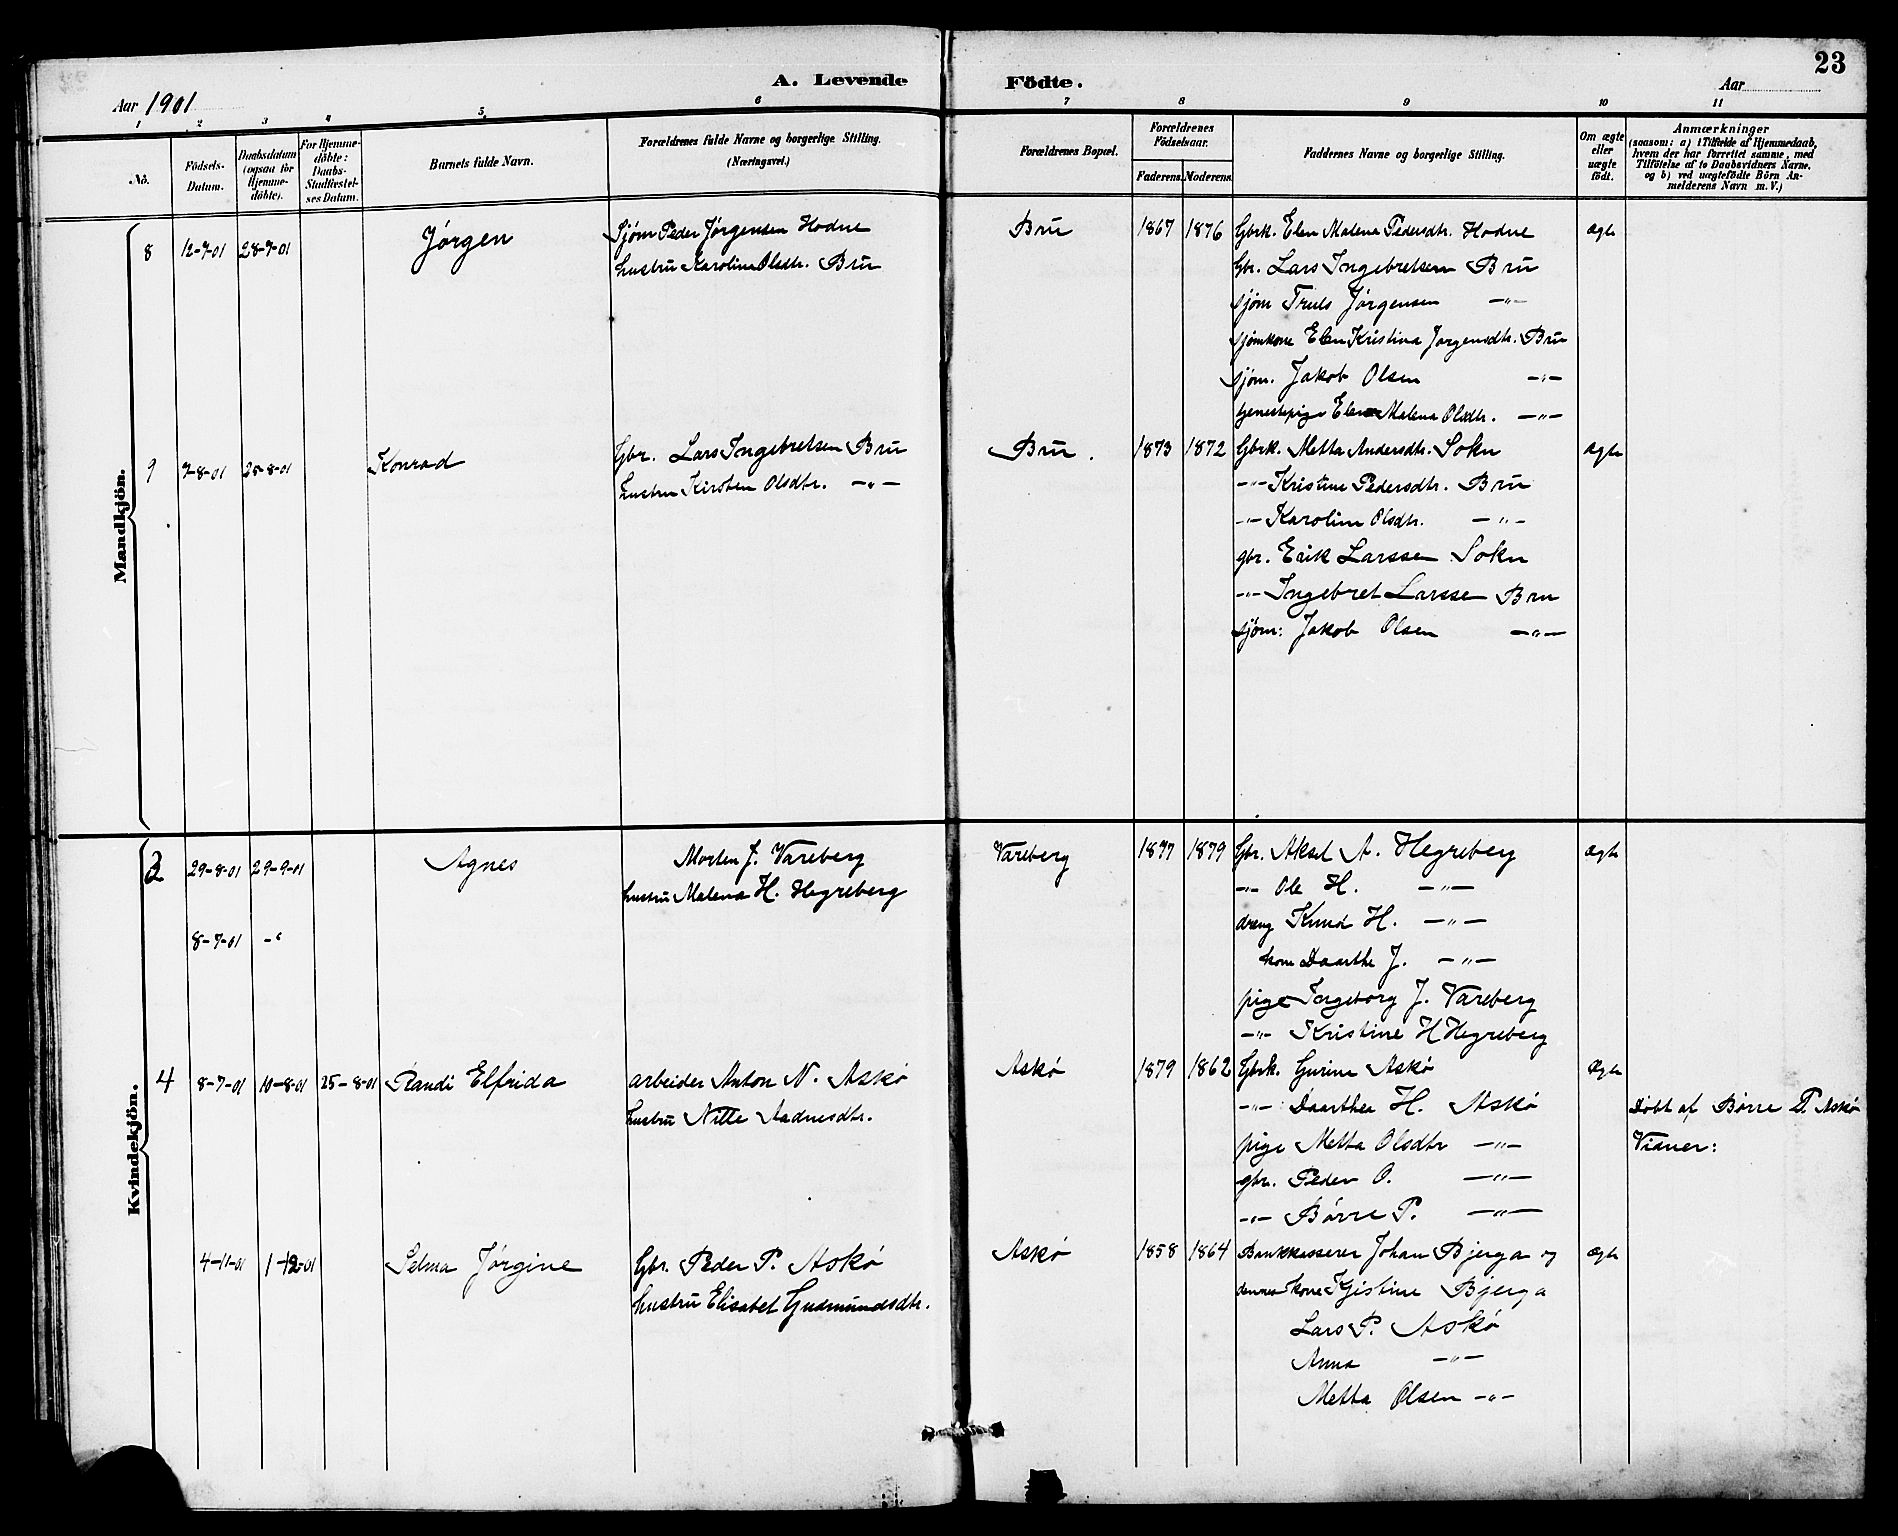 23
A. Levende Födte.
Aar 1901
Aar
1 2 3 4 5 6 7 8 9 10 11
No.
Födsels-
Datum.
Daabsdatum
(ogsaa for
Hjemme-
döbte).
For Hjemme-
döbte:
Daabs-
Stadfæstel-
ses Datum.
Barnets fulde Navn.
Forældrenes fulde Navne og borgerlige Stilling.
(Næringsvei.)
Forældrenes Bopæl.
Forældrenes
Födselsaar.
Faderens. Moderens.
Faddernes Navne og borgerlige Stilling.
Om ægte
eller
uægte
födt.
Anmærkninger
(saasom: a) i Tilfælde af Hjemmedaab,
hvem der har forrettet samme, med
Tilföielse af to Daabsvidners Navne,
og b) ved uægtefödte Börn An-
melderens Navn m. V.)
Mandkjön.
8 12-7-01 28-7-01 Jørgen
Sjøm Peder Jørgensen Hodne
hustru Karoline Olsdtr. Bru
Bru 1867 1876
Gbrk. Elen Malena Pedersdtr. Hodne ægte
Gbr. Lars Ingebretsen Bru
sjøm Truls Jørgensen —"—
sjømkone Elen Kristina Jørgensdtr. Bru
sjøm. Jakob Olsen —"—
tjenestepige Elen Malena Olsdtr. —"—
9 7-8-01 25-8-01 Konrad
Gbr. Lars Ingebretsen Bru
hustru Kirsten Olsdtr. —"—
Bru. 1873 1872
Gbrk. Metta Andersdtr. Sokn ægte
—"— Kristine Pedersdtr. Bru
—"— Karoline Olsdtr. —"—
gbr. Erik Larssen Sokn
—"— Ingebret Larssen Bru
sjøm: Jakob Olsen —"—
Kvindekjön.
3 29-8-01 29-9-01 Agnes
8-7-01 -"
Morten J. Vareberg
hustru Malena H. Hegreberg
Vareberg 1877 1879
Gbr. Aksel A. Hegreberg ægte
—"— Ole H. —"—
dreng Knud H. —"—
kone Daarthe J. —"—
pige Ingeborg J. Vareberg
—"— Kristine H Hegreberg
4 8-7-01 10-8-01 25-8-01 Randi Elfrida
arbeider Anton N. Askø
hustru Nille Aadnesdtr.
Askø 1879 1862
Gbrk. Gurine Askø Ægte
—"— Daarthea H. Askø
pige Metta Olsdtr —"—
gbr. Peder O. —"—
—"— Børre P. —"—
Døbt af Børre P. Askø
Vidner:
4-11-01 1-12-01 Selma Jørgine
Gbr. Peder P. Askø
hustru Elisabet Gudmundsdtr.
Askø 1858 1864
Bankkasserer Johan Bjerga og ægte
dennes kone Kjistine Bjerga
Lars P. Askø
Anna —"—
Metta Olsen —"—